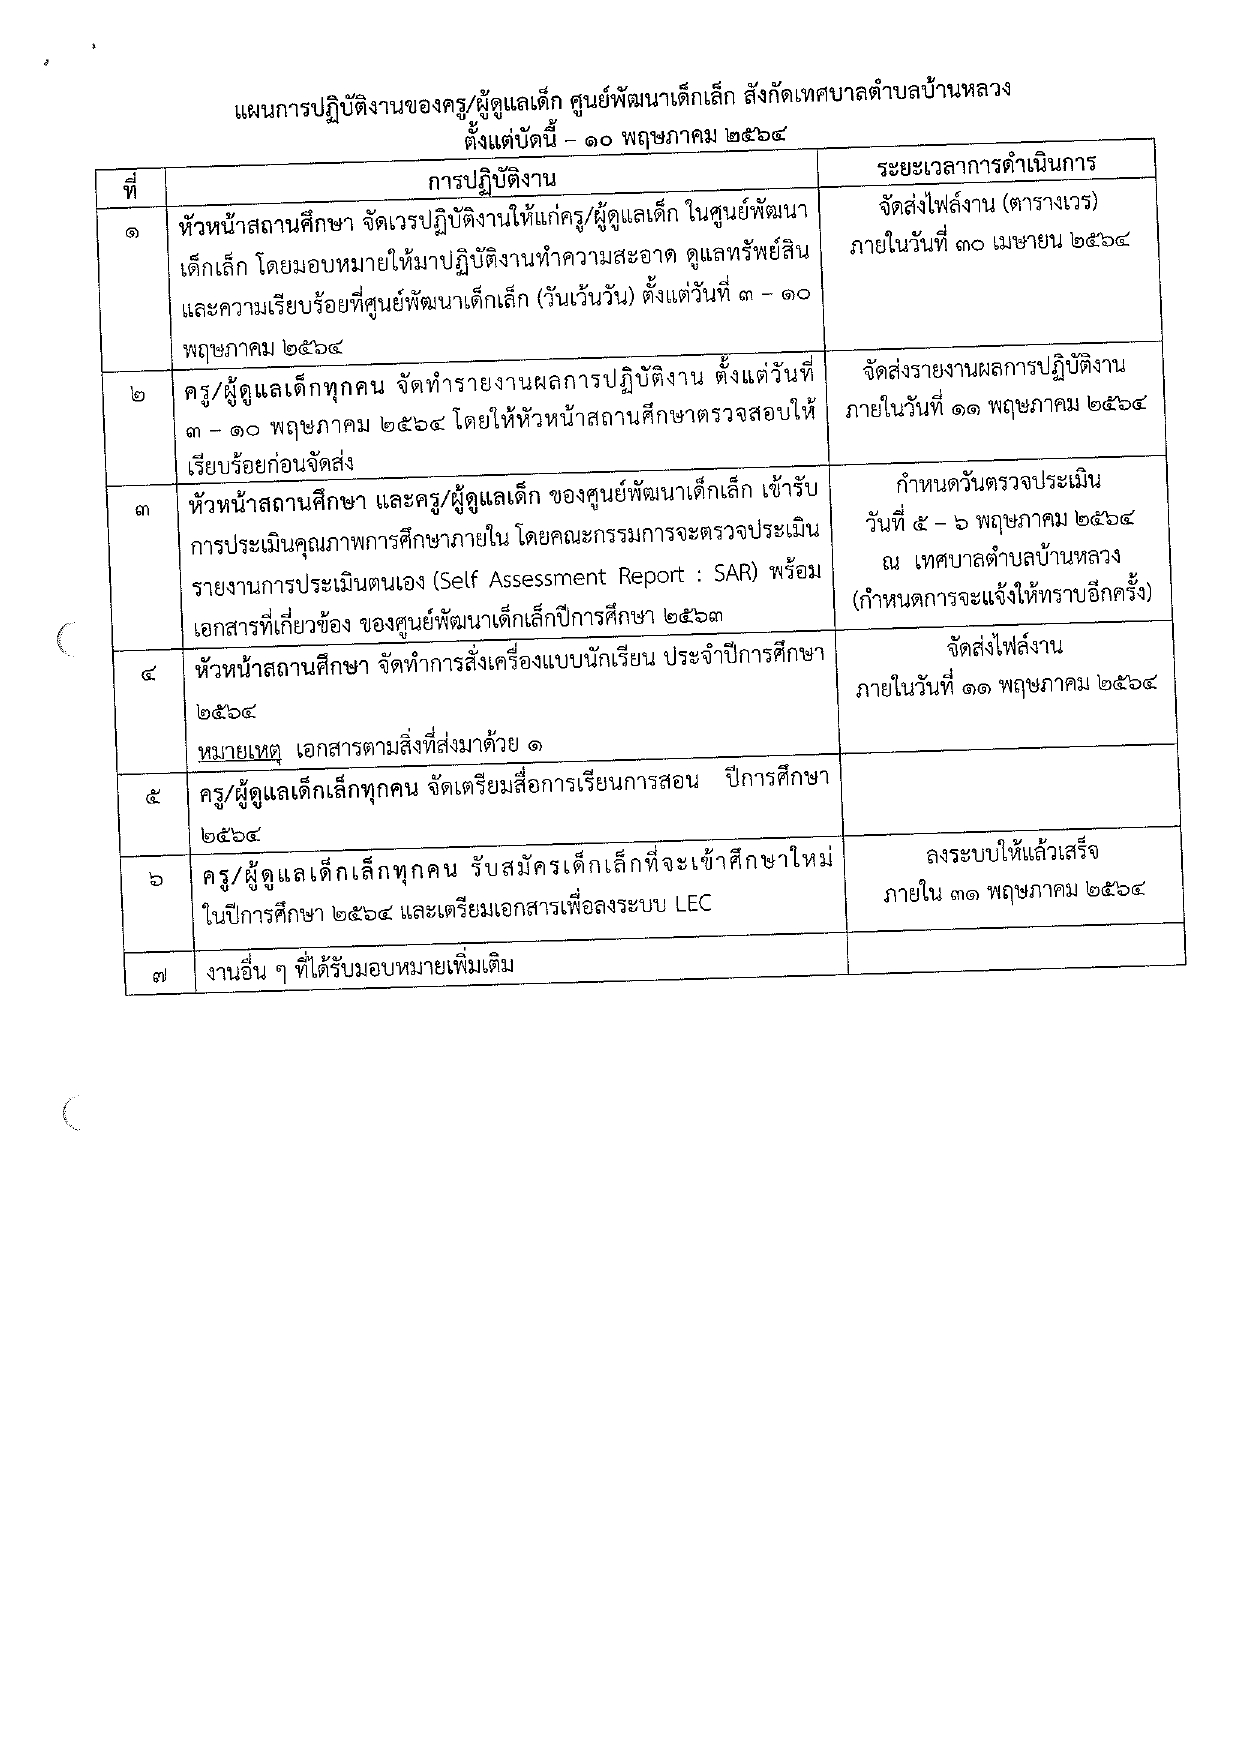 แผนการปฏิบัติงานของครู/ผู้ดูแลเด็ก ศูนย์พัฒนาเด็กเล็ก สังกัดเทศบาลตำบลบ้านหลวง
ตั้งแต่บัดนี้ – ๑๐ พฤษภาคม ๒๕๖๔
ที่
การปฏิบัติงาน
ระยะเวลาการดำเนินการ
๑
หัวหน้าสถานศึกษา จัดเวรปฏิบัติงานให้แก่ครู/ผู้ดูแลเด็ก ในศูนย์พัฒนา
เด็กเล็ก โดยมอบหมายให้มาปฏิบัติงานทำความสะอาด ดูแลทรัพย์สิน
และความเรียบร้อยที่ศูนย์พัฒนาเด็กเล็ก (วันเว้นวัน) ตั้งแต่วันที่ ๓ – ๑๐
พฤษภาคม ๒๕๖๔
จัดส่งไฟล์งาน (ตารางเวร)
ภายในวันที่ ๓๐ เมษายน ๒๕๖๔
๒
ครู/ผู้ดูแลเด็กทุกคน จัดทำรายงานผลการปฏิบัติงาน ตั้งแต่วันที่
๓ – ๑๐ พฤษภาคม ๒๕๖๔ โดยให้หัวหน้าสถานศึกษาตรวจสอบให้
เรียบร้อยก่อนจัดส่ง
จัดส่งรายงานผลการปฏิบัติงาน
ภายในวันที่ ๑๑ พฤษภาคม ๒๕๖๔
๓
หัวหน้าสถานศึกษา และครู/ผู้ดูแลเด็ก ของศูนย์พัฒนาเด็กเล็ก เข้ารับ
การประเมินคุณภาพการศึกษาภายใน โดยคณะกรรมการจะตรวจประเมิน
รายงานการประเมินตนเอง (Self Assessment Report : SAR) พร้อม
เอกสารที่เกี่ยวข้อง ของศูนย์พัฒนาเด็กเล็กปีการศึกษา ๒๕๖๓
กำหนดวันตรวจประเมิน
วันที่ ๕ – ๖ พฤษภาคม ๒๕๖๔
ณ เทศบาลตำบลบ้านหลวง
(กำหนดการจะแจ้งให้ทราบอีกครั้ง)
๔
หัวหน้าสถานศึกษา จัดทำการสั่งเครื่องแบบนักเรียน ประจำปีการศึกษา
๒๕๖๔
หมายเหตุ เอกสารตามสิ่งที่ส่งมาด้วย ๑
จัดส่งไฟล์งาน
ภายในวันที่ ๑๑ พฤษภาคม ๒๕๖๔
๕
ครู/ผู้ดูแลเด็กเล็กทุกคน จัดเตรียมสื่อการเรียนการสอน ปีการศึกษา
๒๕๖๔
๖
ครู/ผู้ดูแลเด็กเล็กทุกคน รับสมัครเด็กเล็กที่จะเข้าศึกษาใหม่
ในปีการศึกษา ๒๕๖๔ และเตรียมเอกสารเพื่อลงระบบ LEC
ลงระบบให้แล้วเสร็จ
ภายใน ๓๑ พฤษภาคม ๒๕๖๔
๗
งานอื่น ๆ ที่ได้รับมอบหมายเพิ่มเติม